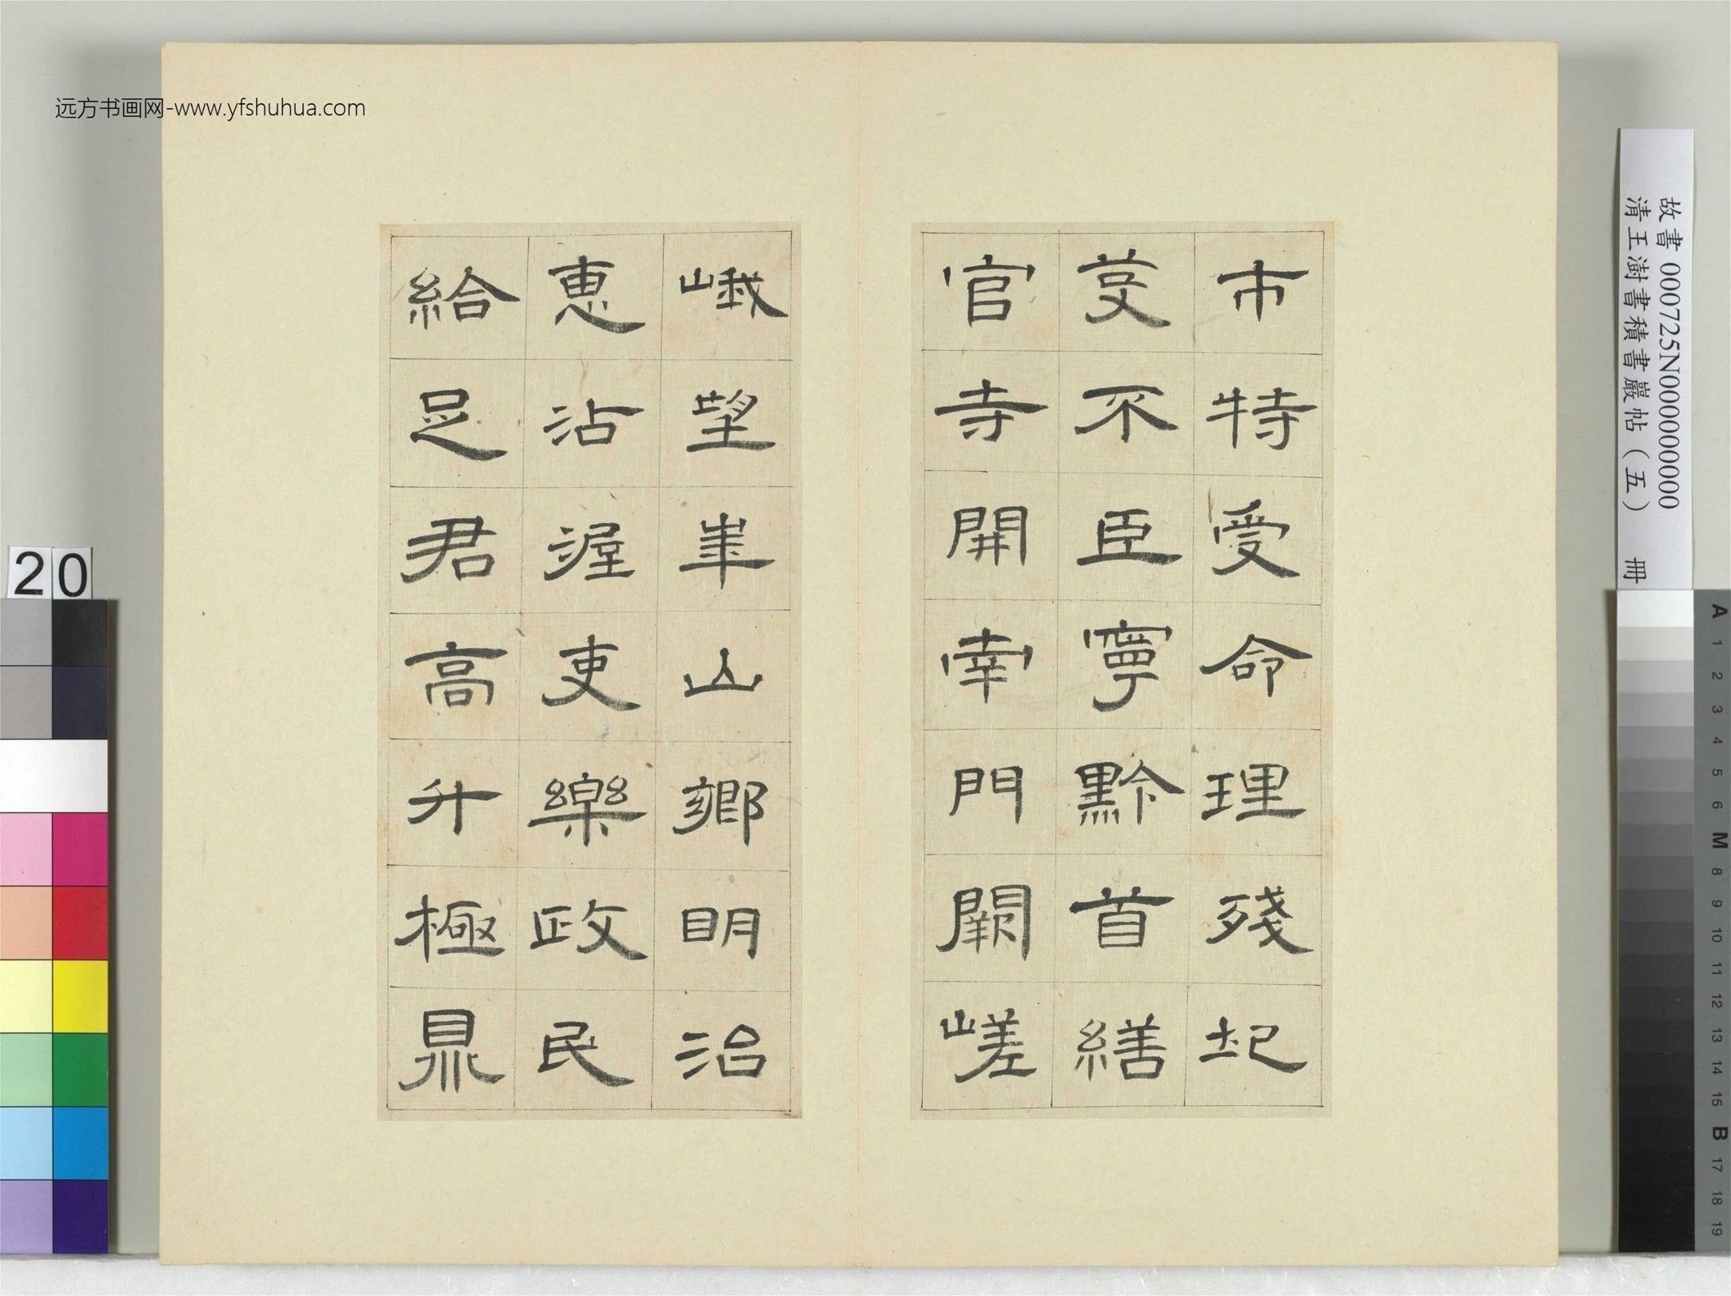 远方书画网-www.yfshuhua.com
市特受命理殘圮
芟不臣寧黔首繕
官寺開南門闕嵯
峨望華山鄉明治
惠沾渥吏樂政民
給足君高升極鼎
故書 000725N000000000
清王澍書積書巖帖（五） 冊
20
A 1 2 3 4 5 6 M 8 9 10 11 12 13 14 15 B 17 18 19